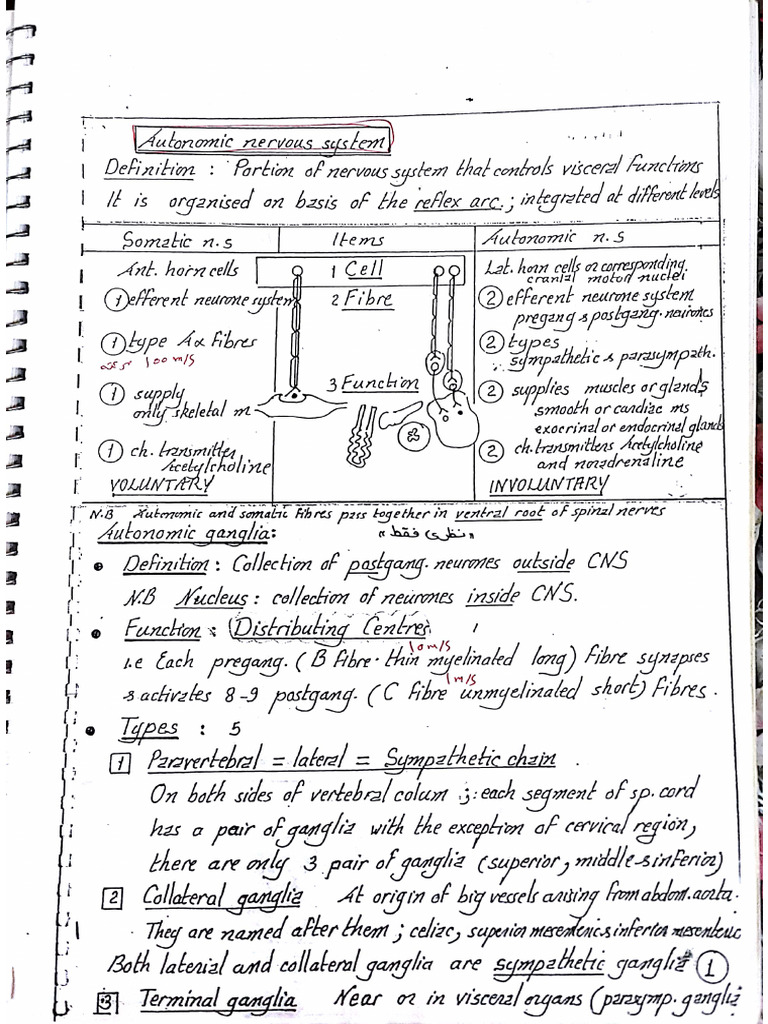 Autonomic nervous system
Definition : Portion of nervous system that controls visceral functions
It is organised on basis of the reflex arc. ; integrated at different levels
Somatic n.s Items Autonomic n.s
Ant. horn cells 1 Cell Lat. horn cells or corresponding.
cranial motor nuclei
1 efferent neurone system 2 Fibre 2 efferent neurone system
pregang & postgang. neurones
1 type Aα fibres 2 types
100 m/s sympathetic & parasympath.
1 supply 3 Function 2 supplies muscles or glands
only skeletal m smooth or cardiac ms
exocrinal or endocrinal glands
1 ch. transmitter 2 ch. transmitters Acetylcholine
Acetylcholine and noradrenaline
VOLUNTARY INVOLUNTARY
N.B Autonomic and somatic fibres pass together in ventral root of spinal nerves
Autonomic ganglia: «نظري فقط»
• Definition : Collection of postgang. neurones outside CNS
N.B Nucleus : collection of neurones inside CNS.
• Function : Distributing Centre.
10 m/s
i.e Each pregang. (B fibre. thin myelinated long) fibre synapses
1 m/s
& activates 8-9 postgang. (C fibre unmyelinated short) fibres.
• Types : 5
1 Paravertebral = lateral = Sympathetic chain .
On both sides of vertebral colum ; each segment of sp. cord
has a pair of ganglia with the exception of cervical region,
there are only 3 pair of ganglia (superior, middle & inferior)
2 Collateral ganglia At origin of big vessels arising from abdom. aorta.
They are named after them ; celiac, superior mesenteric & inferior mesenteric
Both laterial and collateral ganglia are sympathetic ganglia 1
3 Terminal ganglia Near or in visceral organs (parasymp. ganglia